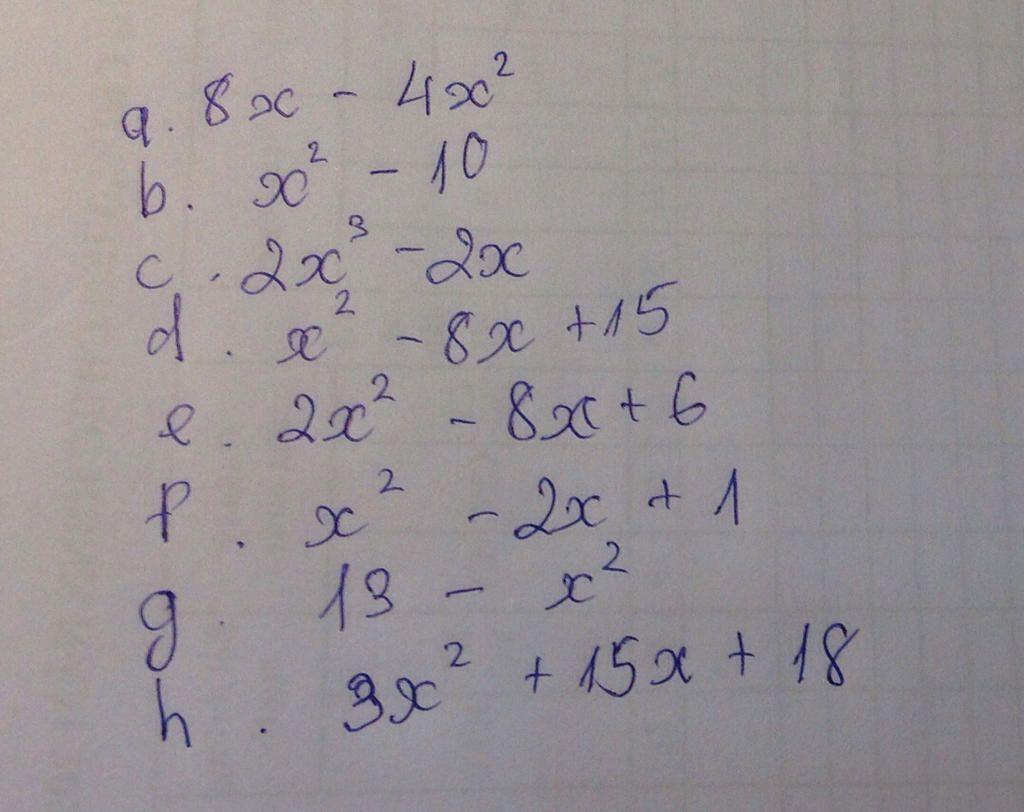 a. 8x - 4x²
b. x² - 10
c. 2x³ - 2x
d. x² - 8x + 15
e. 2x² - 8x + 6
f. x² - 2x + 1
g. 13 - x²
h. 3x² + 15x + 18